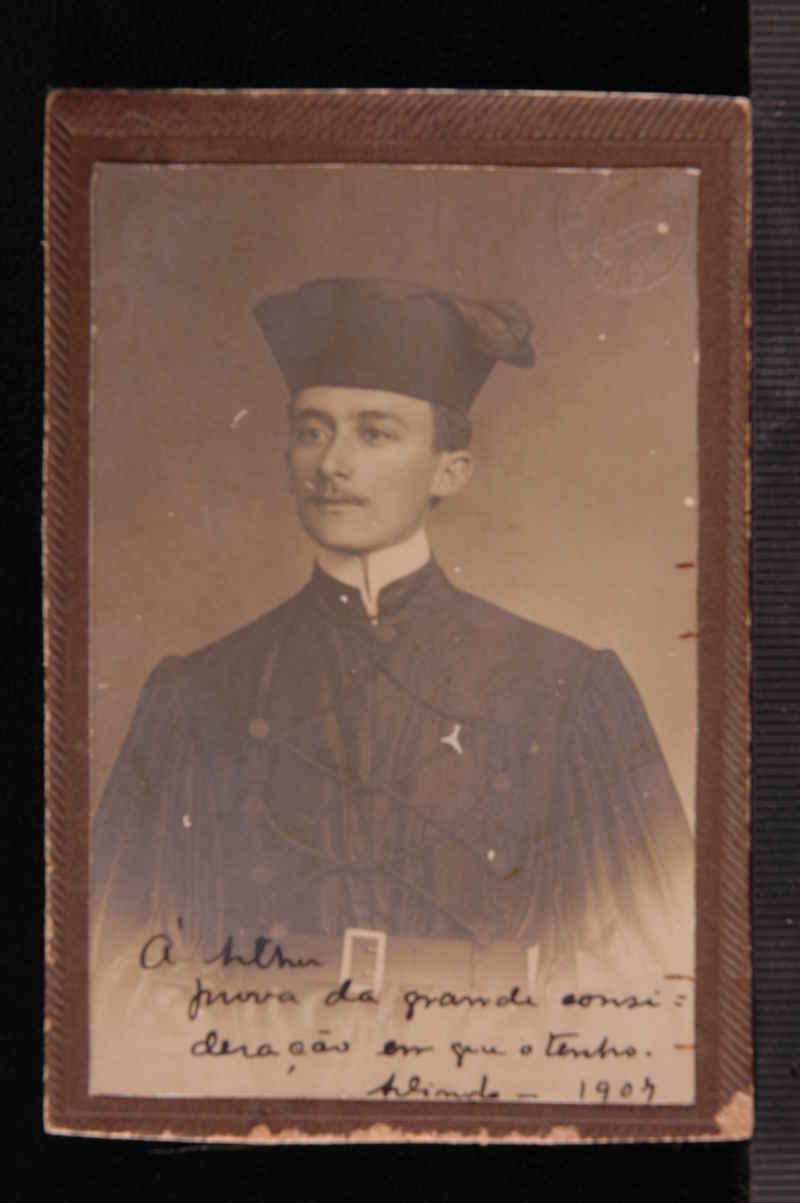 Á
prova da grande consi=
deração em que o tenho.
Alindo - 1907